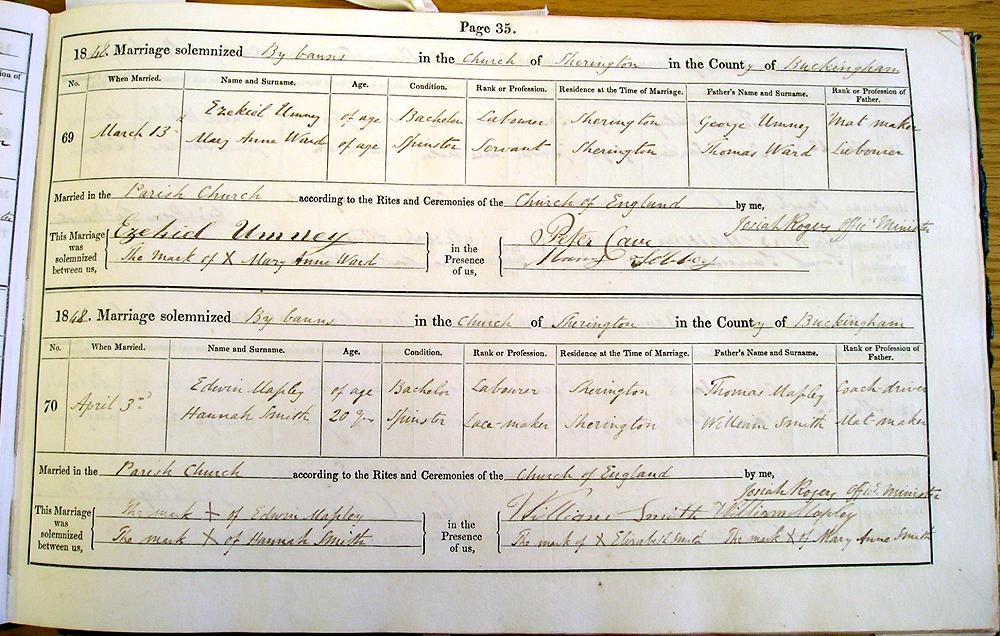 Page 35.
1848. Marriage solemnized By banns in the Church of Sherington in the County of Buckingham
No. When Married. Name and Surname. Age. Condition. Rank or Profession. Residence at the Time of Marriage. Father's Name and Surname. Rank or Profession of Father.
Ezekiel Umney of age Bachelor Labourer Sherington George Umney Mat maker
69 March 13th
Mary Anne Ward of age Spinster Servant Sherington Thomas Ward Labourer
Married in the Parish Church according to the Rites and Ceremonies of the Church of England by me,
Josiah Rogers Offic Minister
This Marriage was solemnized between us,
Ezekiel Umney
The mark of X Mary Anne Ward
in the Presence of us,
Peter Cave
1848. Marriage solemnized By banns in the Church of Sherington in the County of Buckingham
No. When Married. Name and Surname. Age. Condition. Rank or Profession. Residence at the Time of Marriage. Father's Name and Surname. Rank or Profession of Father.
Edwin Mapley of age Bachelor Labourer Sherington Thomas Mapley Coach-driver
70 April 3rd
Hannah Smith 20 yrs Spinster Lace-maker Sherington William Smith Mat-maker
Married in the Parish Church according to the Rites and Ceremonies of the Church of England by me,
Josiah Rogers Offic Minister
This Marriage was solemnized between us,
The mark + of Edwin Mapley
The mark X of Hannah Smith
in the Presence of us,
William Smith William Mapley
The mark of X Elizabeth Smith The mark X of Mary Anne Smith